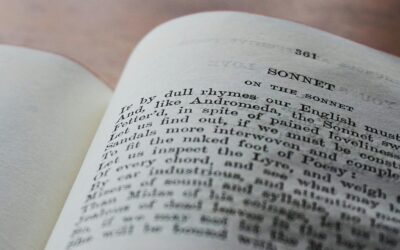 361
SONNET
ON THE SONNET
If by dull rhymes our English must
And, like Andromeda, the Sonnet swe
Fetter'd, in spite of pained loveliness
Let us find out, if we must be const
Sandals more interwoven and comp
To fit the naked foot of Poesy:
Let us inspect the Lyre, and weigh
Of every chord, and see what may
By ear industrious, and
Misers of sound and syllable, no
Than Midas of his coinage, let us
Jealous of dead leaves
So, if we may not let the
She will be bound with